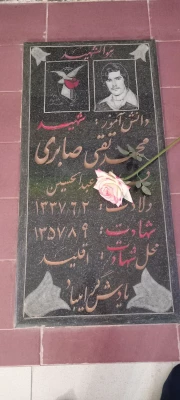 هوالشهید
دانش آموز: شهید
محمد تقی صابری
عبدالحسین
ولادت: ۱۳۳۷٫۶٫۲
شهادت: ۱۳۵۷٫۸٫۹
محل شهادت: اقلید
یادش گرامیباد